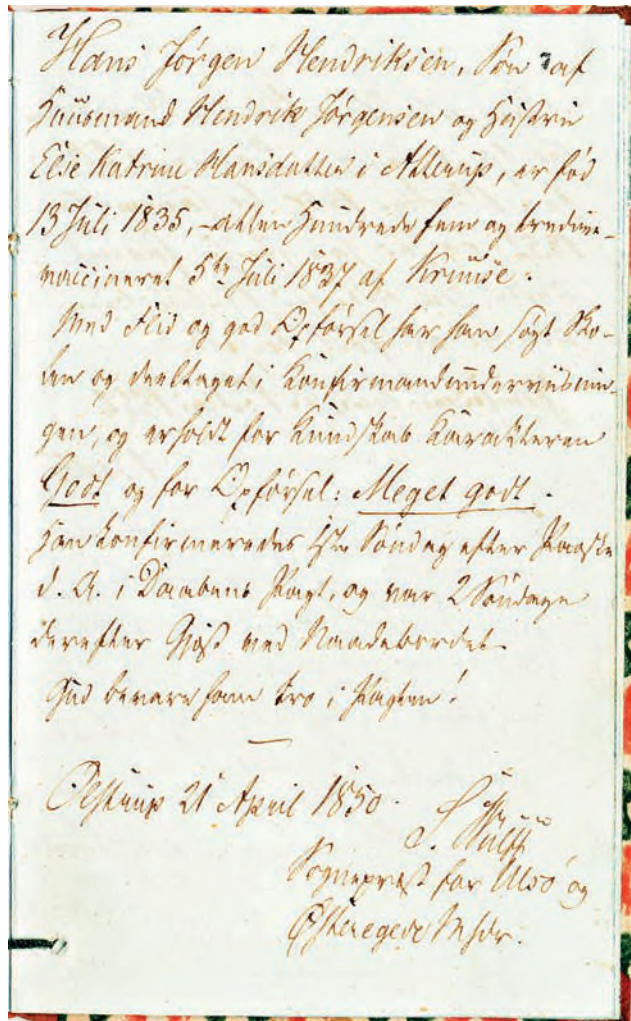 Hans Jörgen Hendriksen, Søn af
Huusmand Hendrik Jörgensen og Hustru
Else Katrine Hansdatter i Atterup, er fød
13 Juli 1835, – atten Hundrede fem og tredive –
vaccineret 5te Juli 1837 af Kruuse.
Med Flid og god Opførsel har han søgt Sko-
len og deeltaget i Konfirmandunderviisnin-
gen, og erholdt for Kundskab Karakteren
Godt og for Opførsel: Meget godt.
Han konfirmeredes 1ste Søndag efter Paaske
d. A. i Daabens Pagt, og var 2 Søndage
derefter Gjæst ved Naadebordet.
Gud bevare ham tro i Pagten!
21 April 1850.
Sognepræst for Ulsø og
Østeregede Mhdr.